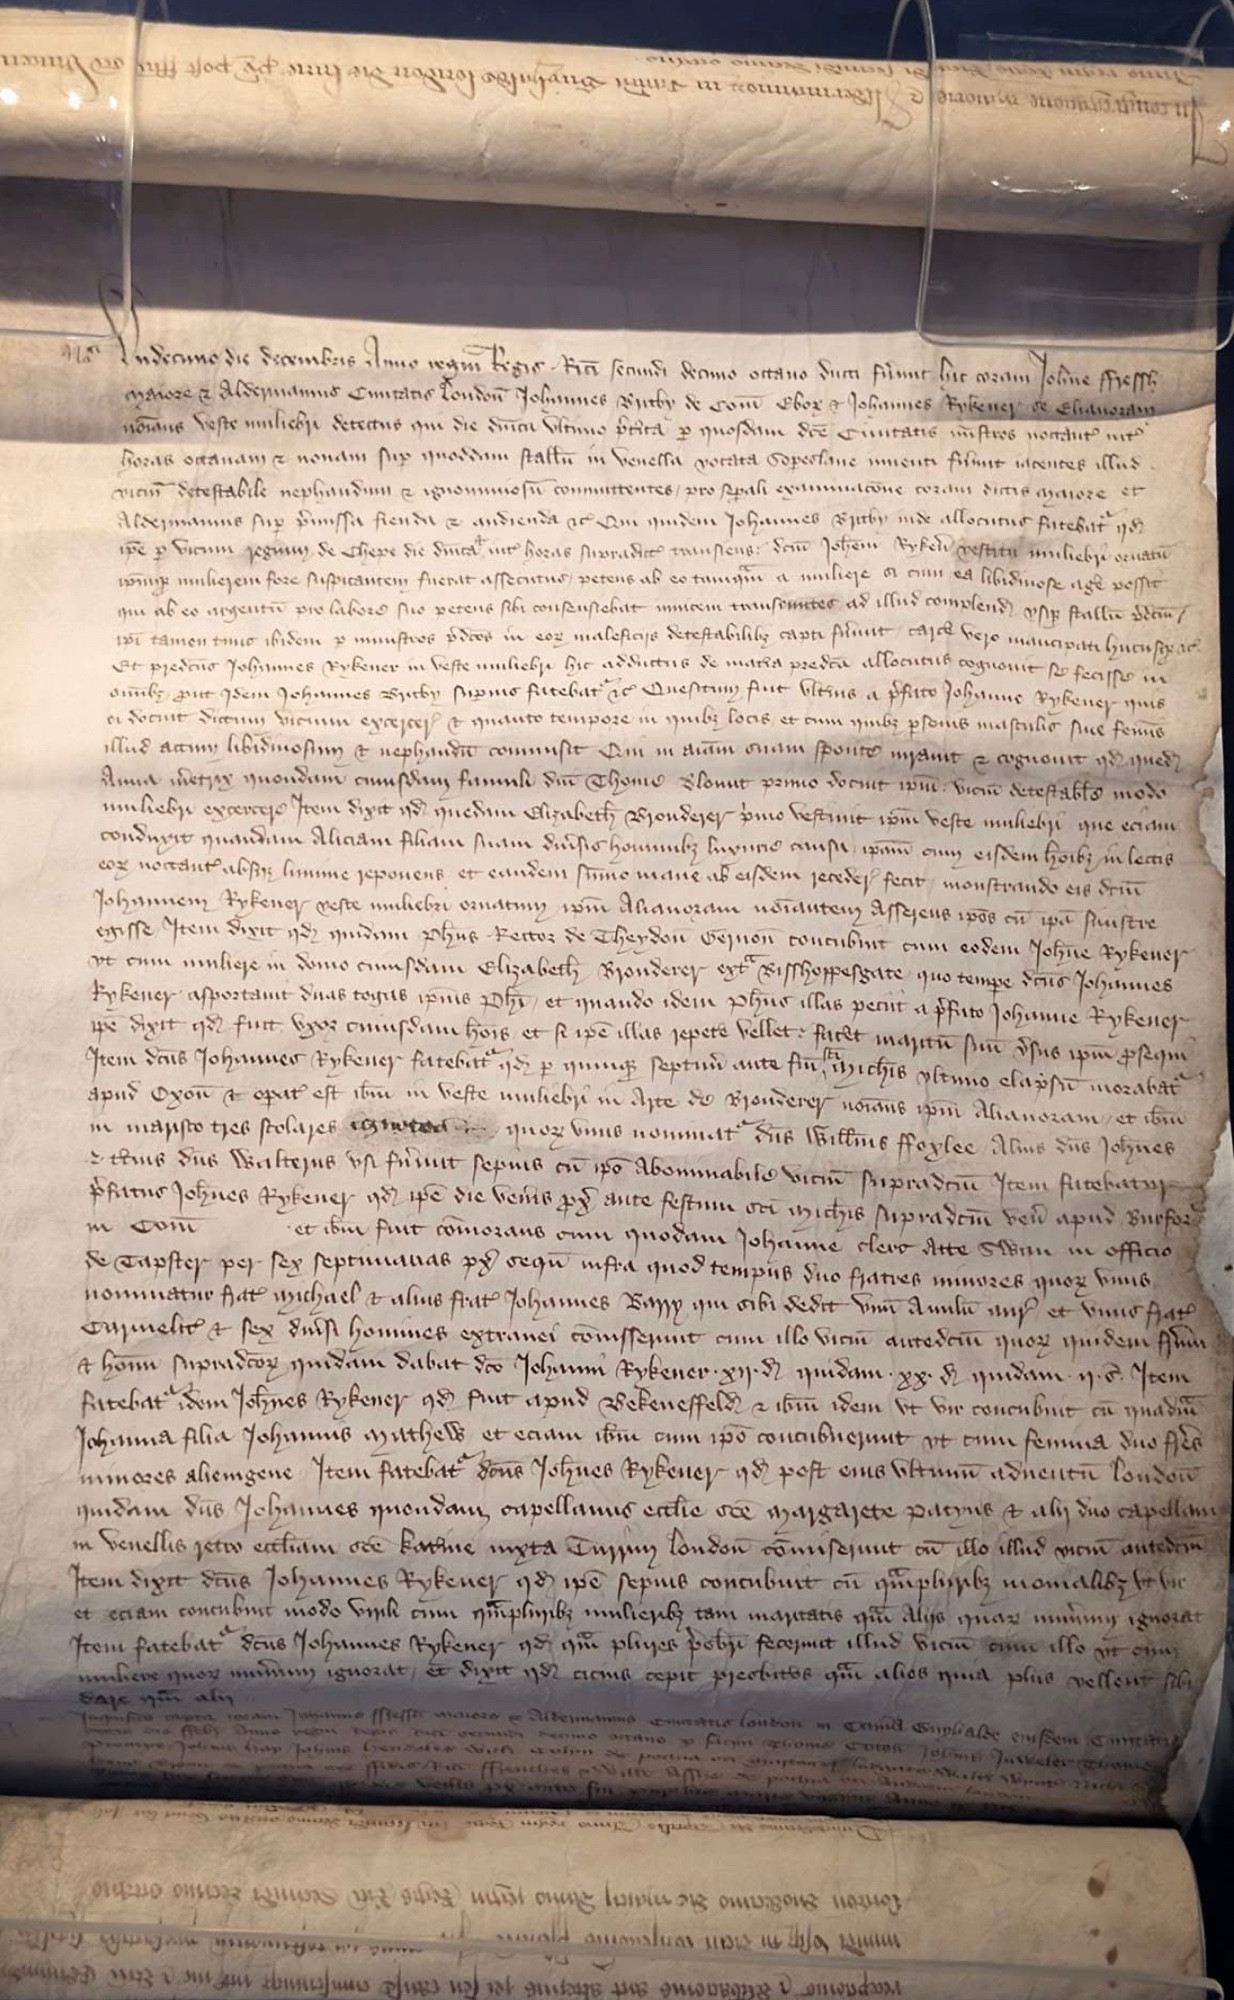 Undecimo die decembris Anno regni Regis Rici secundi decimo octavo ducti fuunt hic coram Johne ffressh
maiore & Aldermannis Civitatis London Johannes Britby de Com Ebor & Johannes Rykener se Elianoram
noians veste muliebri detectus qui die dnica ultimo ptita p quosdam dce Civitatis mistros noctant int
horas octavam & nonam sup quoddam stallu in venella vocata Soperslane inventi fuunt iacentes illud
viciu detestabile nephandum & ignominiosu committentes pro sepali examinacone coram dictis maiore et
Aldermannis sup pmissa fienda & audienda &c Qui quidem Johannes Britby inde allocutus fatebat qd
ipe p vicum regium de Chepe die dnica int horas supradict transiens dcm Johem Ryken vestitu muliebri ornatu
ipmq mulierem fore suspicantem fuerat assecutus petens ab eo tamqam a muliere si cum ea libidinose age possit
qui ab eo argentu pro labore suo petens sibi consensiebat invicem transeuntes ad illud complend usq stallu pdcm
ipi tamen tunc ibidem p ministros pdcos in eor maleficiis detestabilibz capti fuunt carce vero mancipati hucusq &c
Et predcus Johannes Rykener in veste muliebri hic adductus de matia predca allocutus cognovit se fecisse in
omibz put Idem Johannes Britby supius fatebat &c Quesitum fuit ultius a pfato Johanne Rykener quis
ei docuit dictum vicium excercer & quanto tempore in quibz locis et cum quibz psonis masculis sive femis
illud actum libidinosum & nephandu commisit Qui in aiam suam sponte iuravit & cognovit qd qued
Anna metrix quondam cuiusdam famuli dni Thome Blount primo docuit ipm viciu detestable modo
muliebri excercere Item dixit qd quedam Elizabeth Bronderer pmo vestivit ipm veste muliebri que eciam
conduxit quandam Aliciam filiam suam divsis hominibz luxurie causa ipam cum eisdem hoibz in lectis
eor noctant absqz lumine reponens et eandem sumo mane ab eisdem receder fecit monstrando eis dcm
Johannem Rykener veste muliebri ornatum ipm Alianoram noiantem Asserens ipos cu ipa sinistre
egisse Item dixit qd quidam Phus Rector de Theydon Gernon concubuit cum eodem Johne Rykener
ut cum muliere in domo cuiusdam Elizabeth Bronderer ext Bisshoppesgate quo tempe dcus Johannes
Rykener asportavit duas togas ipius Phi et quando idem Phus illas peciit a pfato Johanne Rykener
ipe dixit qd fuit uxor cuiusdam hois et si ipe illas repete vellet facet maritu suu vsus ipm psequi
Item dcus Johannes Rykener fatebat qd p quinqz septim ante fm sci Michis ultimo elapsu morabat
apud Oxon & opat est ibm in veste muliebri in Arte de Bronderer noians ipm Alianoram et ibm
in marisco tres scolares ignotos quor unus nominat dns Willms ffoxlee Alius dns Johnes
& tcius dns Walterus usi fuunt sepius cu ipo Abominabile viciu supradcm Item fatebatur
pfatus Johnes Rykener qd ipe die venis px ante festum sci Michis supradcm ven apud Burford
in Com et ibm fuit comorans cum quodam Johanne clerc Atte Swan in officio
de Tapster per sex septimanas px sequn infra quod tempus duo fratres minores quor unus
nominatur frat Michael & alius frat Johannes Barry qui sibi dedit unu Anulu aur et unus frat
Carmelit & sex divsi homines extranei comisserunt cum illo viciu antedcm quor quidem ffrum
& hoim supradcor quidam dabat dco Johanni Rykener xij d quidam xx d quidam ij s Item
fatebat idem Johnes Rykener qd fuit apud Bekenesfeld & ibm idem ut vir concubuit cu quadm
Johanna filia Johannis Mathew et eciam ibm cum ipo concubuerunt ut cum femina duo ffres
minores alienigene Item fatebat dcus Johnes Rykener qd post eius ultimu adventu London
quidam dns Johannes quondam capellanus ecclie sce Margarete Patyns & alii duo capellani
in venellis retro ecctiam sce Katine iuxta Turrim London comiserunt cu illo illud viciu antedcm
Item dixit dcus Johannes Rykener qd ipe sepius concubuit cu qmpluribz monialibz ut vir
et eciam concubuit modo virili cum qmpluribz mulieribz tam maritatis qm Aliis quar numum ignorat
Item fatebat dcus Johannes Rykener qd qm plures psbri fecerunt illud viciu cum illo ut cum
muliere quor numum ignorat et dixit qd cicius cepit presbitos qm alios quia plus vellent sibi
dare qm alii